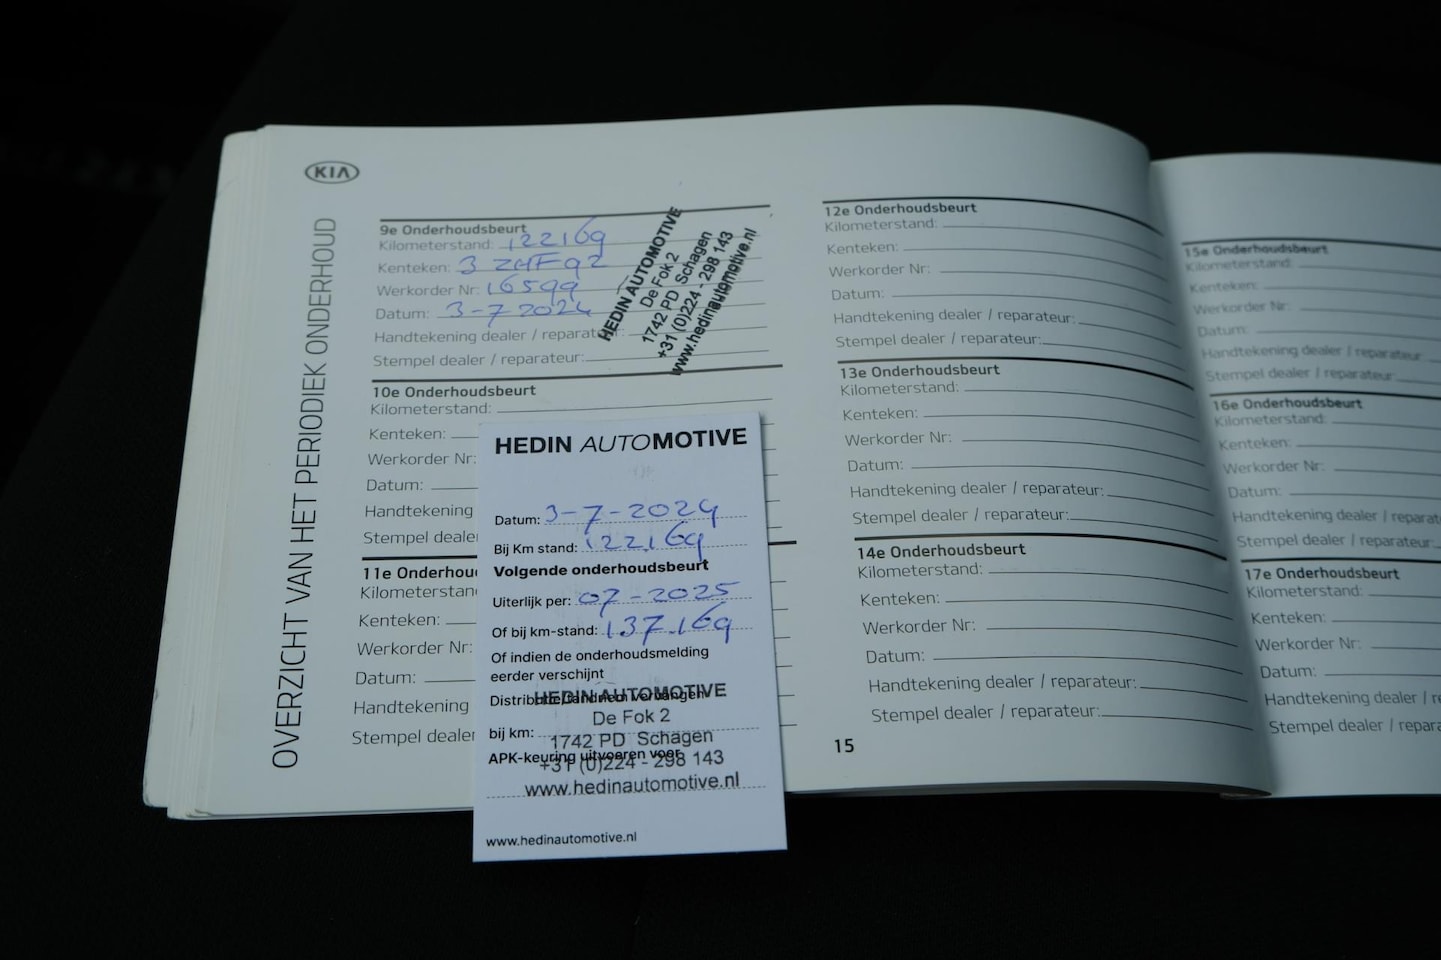 KIA
OVERZICHT VAN HET PERIODIEK ONDERHOUD
9e Onderhoudsbeurt
Kilometerstand: 122169
Kenteken: 3 ZHF92
Werkorder Nr: 16599
Datum: 3-7 2024
Handtekening dealer / reparateur:
Stempel dealer / reparateur:
HEDIN AUTOMOTIVE
De Fok 2
1742 PD Schagen
+31 (0)224 - 298 143
www.hedinautomotive.nl
10e Onderhoudsbeurt
Kilometerstand:
Kenteken:
Werkorder Nr:
Datum:
Handtekening
Stempel dealer
11e Onderhou
Kilometerstan
Kenteken:
Werkorder Nr:
Datum:
Handtekening
Stempel dealer
HEDIN AUTOMOTIVE
Datum: 3-7-2024
Bij Km stand: 122.169
Volgende onderhoudsbeurt
Uiterlijk per: 07-2025
Of bij km-stand: 137.169
Of indien de onderhoudsmelding
eerder verschijnt
Distributieriem vervangen
bij km:
APK-keuring uitvoeren voor
HEDIN AUTOMOTIVE
De Fok 2
1742 PD Schagen
+31 (0)224 - 298 143
www.hedinautomotive.nl
www.hedinautomotive.nl
12e Onderhoudsbeurt
Kilometerstand:
Kenteken:
Werkorder Nr:
Datum:
Handtekening dealer / reparateur:
Stempel dealer / reparateur:
13e Onderhoudsbeurt
Kilometerstand:
Kenteken:
Werkorder Nr:
Datum:
Handtekening dealer / reparateur:
Stempel dealer / reparateur:
14e Onderhoudsbeurt
Kilometerstand:
Kenteken:
Werkorder Nr:
Datum:
Handtekening dealer / reparateur:
Stempel dealer / reparateur:
15
15e Onderhoudsbeurt
Kilometerstand:
Kenteken:
Werkorder Nr:
Datum:
Handtekening dealer / reparateur:
Stempel dealer / reparateur:
16e Onderhoudsbeurt
Kilometerstand:
Kenteken:
Werkorder Nr:
Datum:
Handtekening dealer / reparat
Stempel dealer / reparateur:
17e Onderhoudsbeurt
Kilometerstand:
Kenteken:
Werkorder Nr:
Datum:
Handtekening dealer / re
Stempel dealer / repara